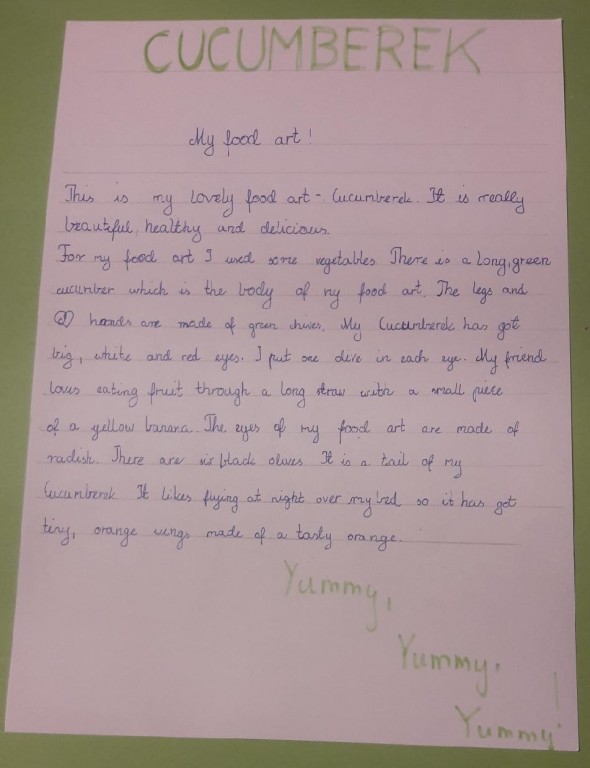 CUCUMBEREK
My food art!
This is my lovely food art - Cucumberek. It is really
beautiful, healthy and delicious.
For my food art I used some vegetables There is a long, green
cucumber which is the body of my food art. The legs and
hands are made of green chives. My Cucumberek has got
big, white and red eyes. I put one olive in each eye. My friend
loves eating fruit through a long straw with a small piece
of a yellow banana. The eyes of my food art are made of
radish. There are six black olives It is a tail of my
Cucumberek It likes flying at night over my bed so it has got
tiny, orange wings made of a tasty orange.
Yummy,
Yummy.
Yummy!